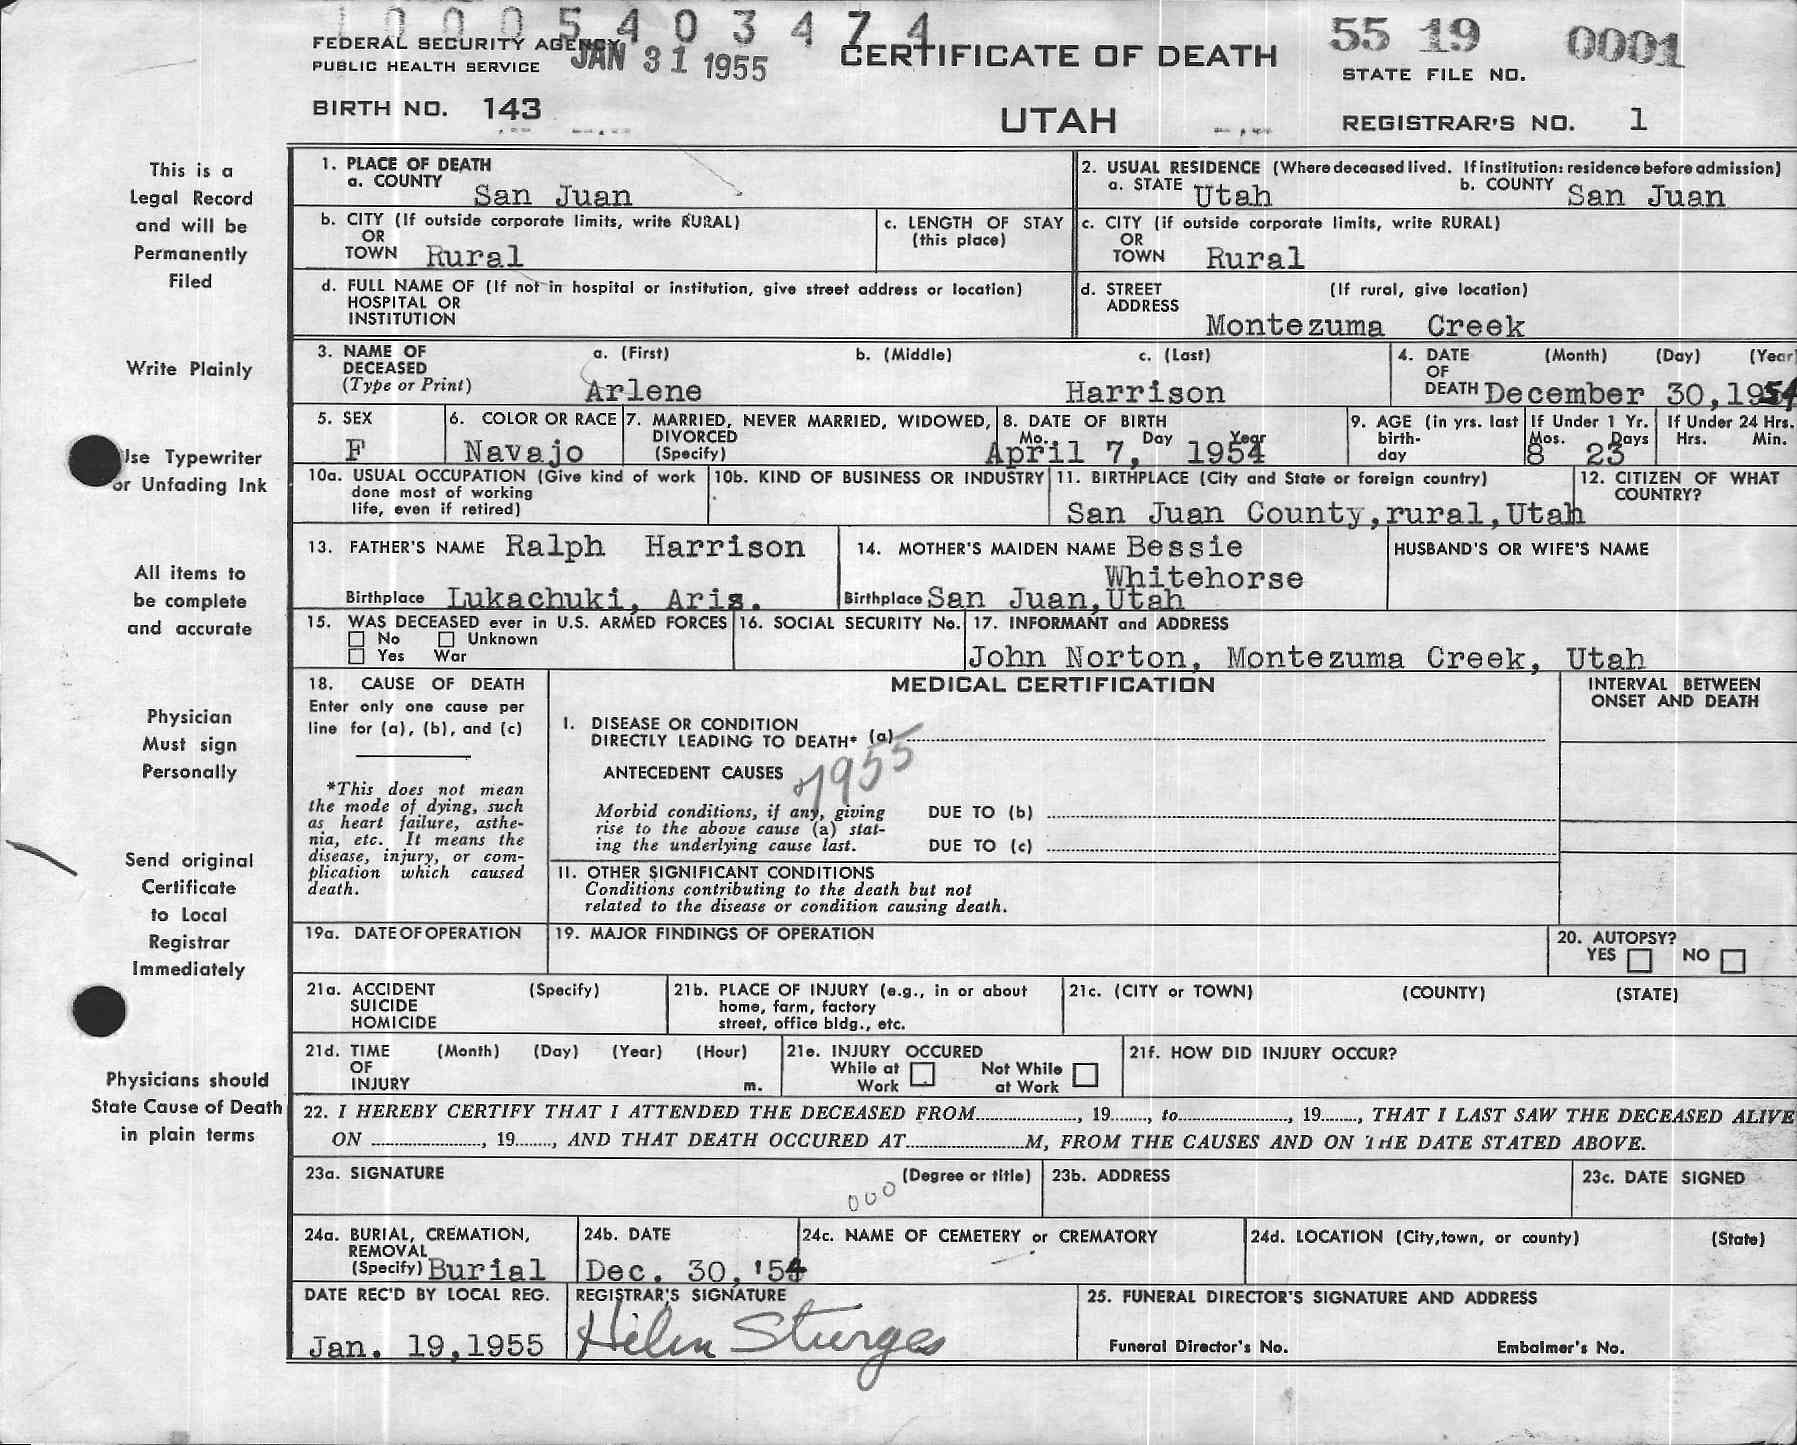 1 0 0 0 5 4 0 3 4 7 4
FEDERAL SECURITY AGENCY
PUBLIC HEALTH SERVICE
JAN 31 1955
CERTIFICATE OF DEATH
55 19 0001
STATE FILE NO.
BIRTH NO. 143
UTAH
REGISTRAR'S NO. 1
This is a
Legal Record
and will be
Permanently
Filed
Write Plainly
Use Typewriter
or Unfading Ink
All items to
be complete
and accurate
Physician
Must sign
Personally
Send original
Certificate
to Local
Registrar
Immediately
Physicians should
State Cause of Death
in plain terms
1. PLACE OF DEATH
a. COUNTY San Juan
2. USUAL RESIDENCE (Where deceased lived. If institution: residence before admission)
a. STATE Utah b. COUNTY San Juan
b. CITY (If outside corporate limits, write RURAL)
OR
TOWN Rural
c. LENGTH OF STAY
(this place)
c. CITY (if outside corporate limits, write RURAL)
OR
TOWN Rural
d. FULL NAME OF (If not in hospital or institution, give street address or location)
HOSPITAL OR
INSTITUTION
d. STREET (If rural, give location)
ADDRESS
Montezuma Creek
3. NAME OF a. (First) b. (Middle) c. (Last)
DECEASED
(Type or Print) Arlene Harrison
4. DATE (Month) (Day) (Year)
OF
DEATH December 30, 1954
5. SEX
F
6. COLOR OR RACE
Navajo
7. MARRIED, NEVER MARRIED, WIDOWED,
DIVORCED
(Specify)
8. DATE OF BIRTH
Mo. Day Year
April 7, 1954
9. AGE (in yrs. last
birth-
day
If Under 1 Yr.
Mos. Days
8 23
If Under 24 Hrs.
Hrs. Min.
10a. USUAL OCCUPATION (Give kind of work
done most of working
life, even if retired)
10b. KIND OF BUSINESS OR INDUSTRY
11. BIRTHPLACE (City and State or foreign country)
San Juan County,rural,Utah
12. CITIZEN OF WHAT
COUNTRY?
13. FATHER'S NAME Ralph Harrison
Birthplace Lukachuki, Aris.
14. MOTHER'S MAIDEN NAME Bessie
Whitehorse
Birthplace San Juan,Utah
HUSBAND'S OR WIFE'S NAME
15. WAS DECEASED ever in U.S. ARMED FORCES
No Unknown
Yes War
16. SOCIAL SECURITY No.
17. INFORMANT and ADDRESS
John Norton, Montezuma Creek, Utah
18. CAUSE OF DEATH
Enter only one cause per
line for (a), (b), and (c)
*This does not mean
the mode of dying, such
as heart failure, asthe-
nia, etc. It means the
disease, injury, or com-
plication which caused
death.
MEDICAL CERTIFICATION
INTERVAL BETWEEN
ONSET AND DEATH
I. DISEASE OR CONDITION
DIRECTLY LEADING TO DEATH* (a)
ANTECEDENT CAUSES
7955
Morbid conditions, if any, giving DUE TO (b)
rise to the above cause (a) stat-
ing the underlying cause last. DUE TO (c)
II. OTHER SIGNIFICANT CONDITIONS
Conditions contributing to the death but not
related to the disease or condition causing death.
19a. DATE OF OPERATION
19. MAJOR FINDINGS OF OPERATION
20. AUTOPSY?
YES NO
21a. ACCIDENT (Specify)
SUICIDE
HOMICIDE
21b. PLACE OF INJURY (e.g., in or about
home, farm, factory
street, office bldg., etc.
21c. (CITY or TOWN) (COUNTY) (STATE)
21d. TIME (Month) (Day) (Year) (Hour)
OF
INJURY m.
21e. INJURY OCCURED
While at Not While
Work at Work
21f. HOW DID INJURY OCCUR?
22. I HEREBY CERTIFY THAT I ATTENDED THE DECEASED FROM............, 19......, to............, 19......, THAT I LAST SAW THE DECEASED ALIVE
ON ............, 19......, AND THAT DEATH OCCURED AT............M, FROM THE CAUSES AND ON THE DATE STATED ABOVE.
23a. SIGNATURE (Degree or title)
000
23b. ADDRESS
23c. DATE SIGNED
24a. BURIAL, CREMATION,
REMOVAL
(Specify) Burial
24b. DATE
Dec. 30, '54
24c. NAME OF CEMETERY or CREMATORY
24d. LOCATION (City, town, or county) (State)
DATE REC'D BY LOCAL REG.
Jan. 19,1955
REGISTRAR'S SIGNATURE
Helen Sturges
25. FUNERAL DIRECTOR'S SIGNATURE AND ADDRESS
Funeral Director's No. Embalmer's No.